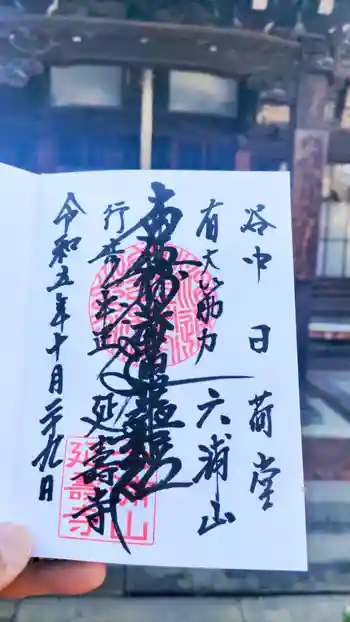 谷中日荷堂
有大筋力 六浦山
南無妙法蓮華経
行歩平正 延壽寺
令和五年十月二十九日
延壽寺